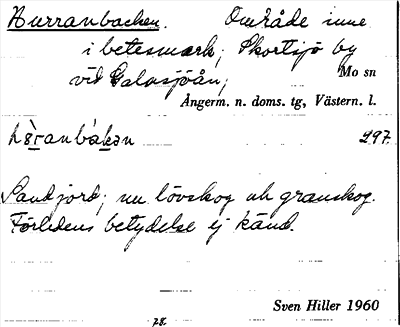 Hurranbacken. Område inne
i betesmark; Skortsjö by
vid Galasjöån; Mo sn
Ångerm. n. doms. tg, Västern. l.
297.
Sandjord; nu lövskog och granskog.
Förledens betydelse ej känd.
Sven Hiller 1960
78.